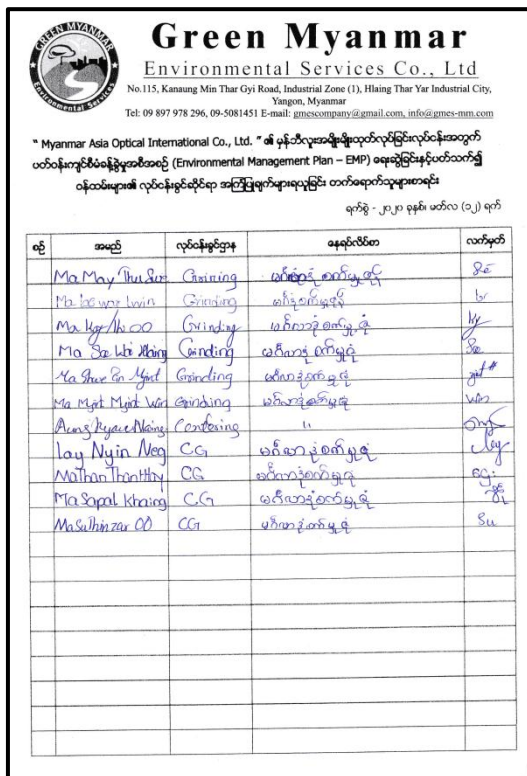 GREEN MYANMAR
Environmental Services
Green Myanmar
Environmental Services Co., Ltd
No.115, Kanaung Min Thar Gyi Road, Industrial Zone (1), Hlaing Thar Yar Industrial City,
Yangon, Myanmar
Tel: 09 897 978 296, 09-5081451 E-mail: gmescompany@gmail.com, info@gmes-mm.com
" Myanmar Asia Optical International Co., Ltd. " ၏ မှန်ဘီလူးအမျိုးမျိုးထုတ်လုပ်ခြင်းလုပ်ငန်းအတွက်
ပတ်ဝန်းကျင်စီမံခန့်ခွဲမှုအစီအစဉ် (Environmental Management Plan – EMP) ရေးဆွဲခြင်းနှင့်ပတ်သက်၍
ဝန်ထမ်းများ၏ လုပ်ငန်းခွင်ဆိုင်ရာ အကြံပြုချက်များရယူခြင်း တက်ရောက်သူများစာရင်း
ရက်စွဲ - ၂၀၂၀ ခုနှစ်၊ မတ်လ (၁၂) ရက်
စဉ် အမည် လုပ်ငန်းခွင်ဌာန နေရပ်လိပ်စာ လက်မှတ်
Ma May Thu
Grinding
Ma Grinding မင်္ဂလာဒုံစက်မှုဇုံ
Ma Khaing Grinding မင်္ဂလာဒုံစက်မှုဇုံ
Grinding မင်္ဂလာဒုံစက်မှုဇုံ
Ma Myint Myint Win Grinding မင်္ဂလာဒုံစက်မှုဇုံ Win
Aung Kyaw Naing "
Lay Nyin CG မင်္ဂလာဒုံစက်မှုဇုံ
Ma Than Than Htay CG မင်္ဂလာဒုံစက်မှုဇုံ
Ma Sapal Khaing CG မင်္ဂလာဒုံစက်မှုဇုံ
Ma Su Thinzar OO CG မင်္ဂလာဒုံစက်မှုဇုံ Su